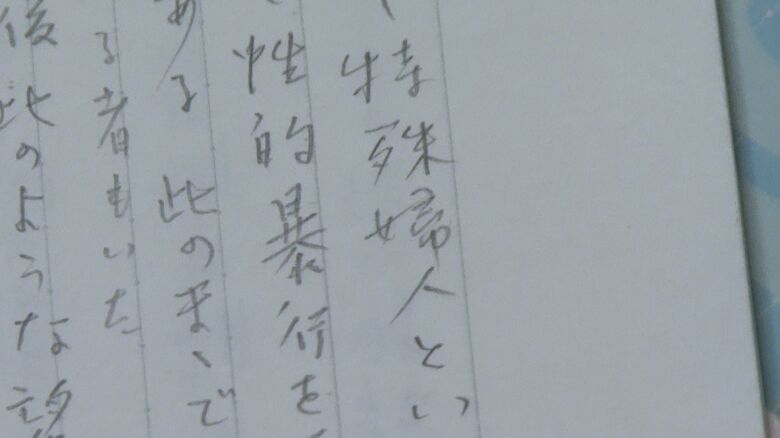 特殊婦人とい
性的暴行を
ある 此のまゝで
る者もいた
後此のような